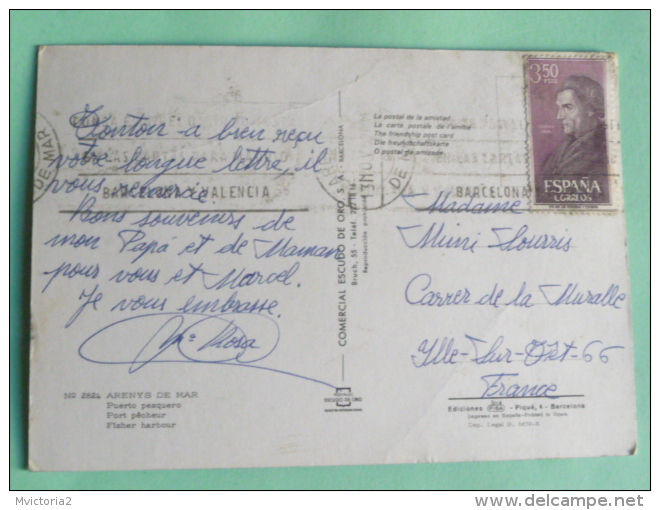 Tonton a bien reçu
votre longue lettre, il
vous remercie
BARCELONA Y VALENCIA
Bons souvenirs de
mon Papá et de Maman
pour vous et Marcel.
Je vous embrasse.
Mª Rosa
Nº 2624 ARENYS DE MAR
Puerto pesquero
Port pêcheur
Fisher harbour
DE MAR
COMERCIAL ESCUDO DE ORO, S. A. - BARCELONA
Bruch, 55 - Telef.
Reproducción prohibida
ESCUDO DE ORO
La postal de la amistad
La carte postale de l'amitié
The friendship post card
Die freundschaftskarte
O postal da amizade
DE M
BARCELONA
3,50
PTAS
ESPAÑA
CORREOS
Madame
Mimi Sourris
Carrer de la Muralle
Ille-Sur-Têt-66
France
Ediciones (FISA) - Piqué, 4 - Barcelona
Impreso en España-Printed in Spain
Dep. Legal B.
Mvictoria2
delcampe.net